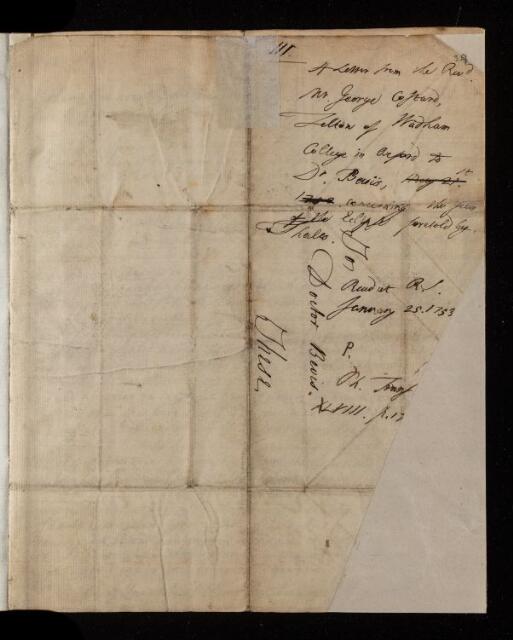 III.
A Letter from the Revd.
Mr. George Costard,
Fellow of Wadham
College in Oxford to
Dr. Bevis,
concerning the year
of the Eclipse foretold by
Thales.
Read at R.S.
January 25. 1753
P.
Ph. Trans
XLVIII. p. 17
To
Doctor Bevis.
These.